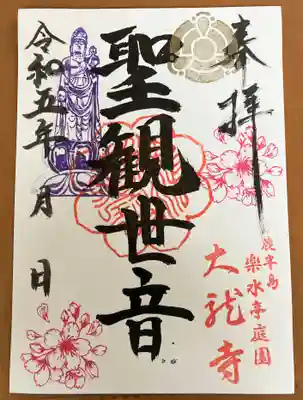 奉拝
聖観世音
令和五年 月 日
半島
楽水亭庭園
大龍寺